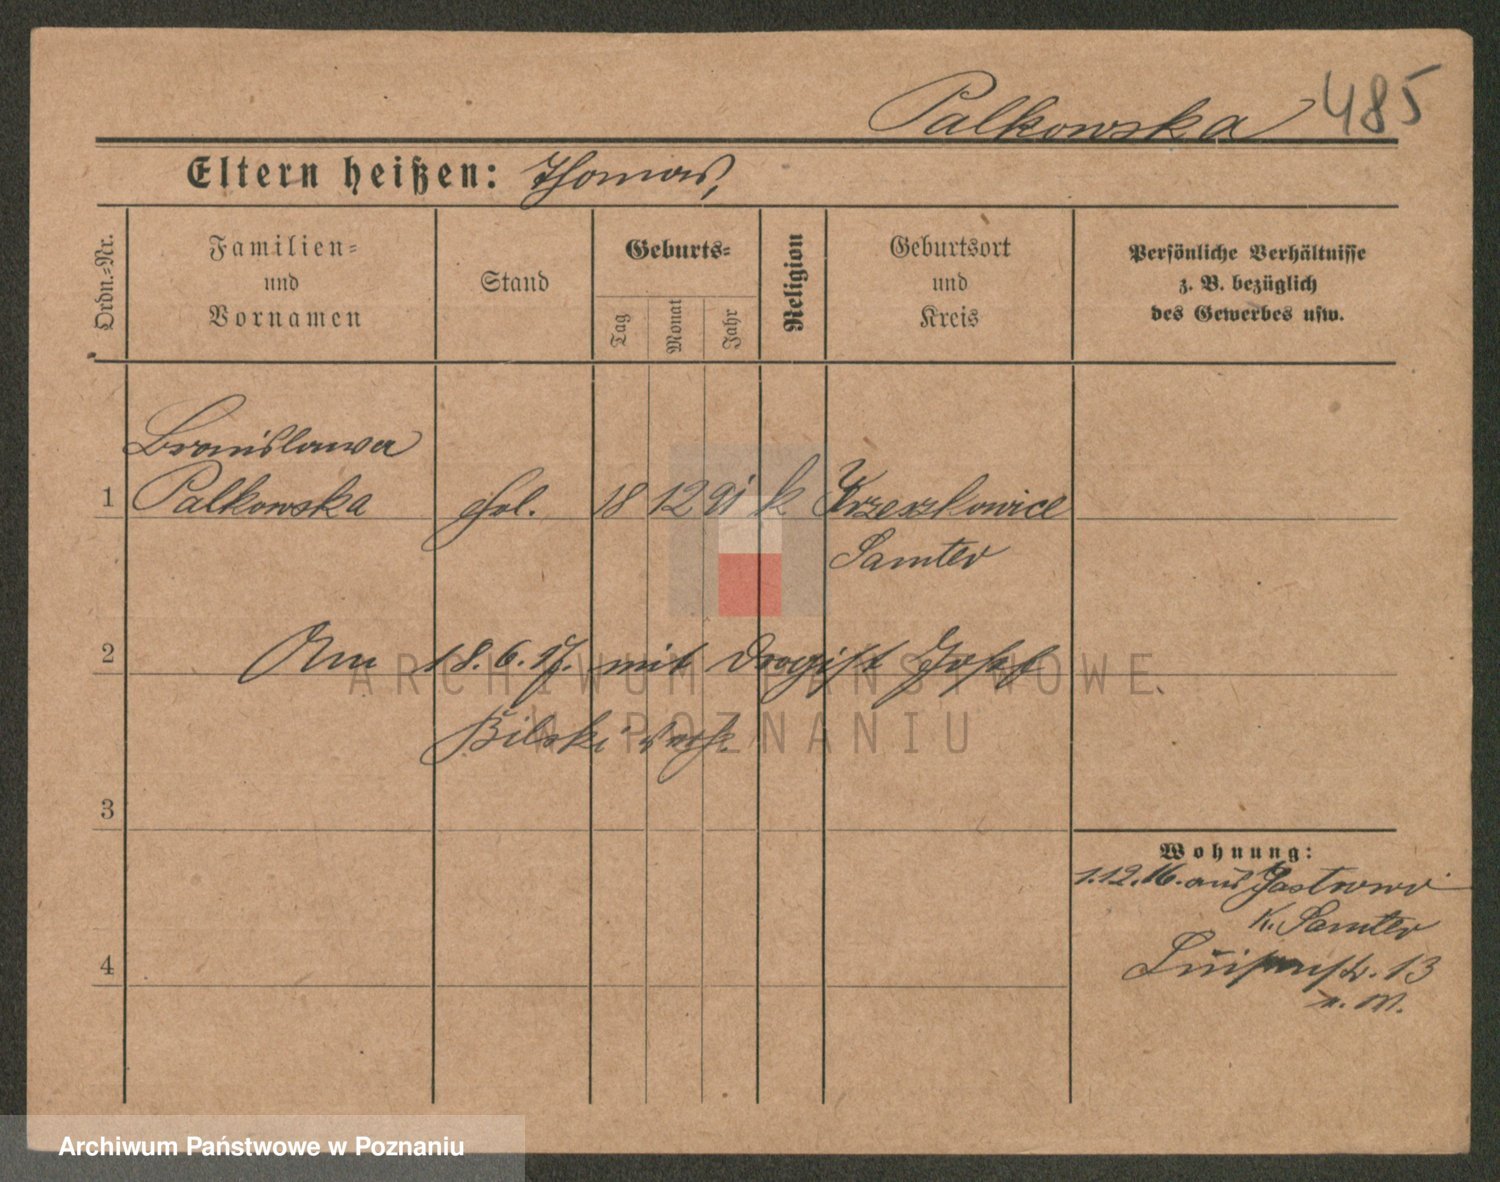 Palkowska 485
Eltern heißen: Thomas,
Ordn.=Nr.
Familien=
und
Vornamen
Stand
Geburts=
Tag
Monat
Jahr
Religion
Geburtsort
und
Kreis
Persönliche Verhältnisse
z. B. bezüglich
des Gewerbes usw.
Bronislawa
1 Palkowska Frl. 18 12 91 k
Samter
2 Am 18.6.17. mit Drogist Josef
Bilski verh.
3
4
Wohnung:
1.12.16. aus Jastrowo
K. Samter
Luisenstr. 13
ARCHIWUM PAŃSTWOWE
W POZNANIU
Archiwum Państwowe w Poznaniu